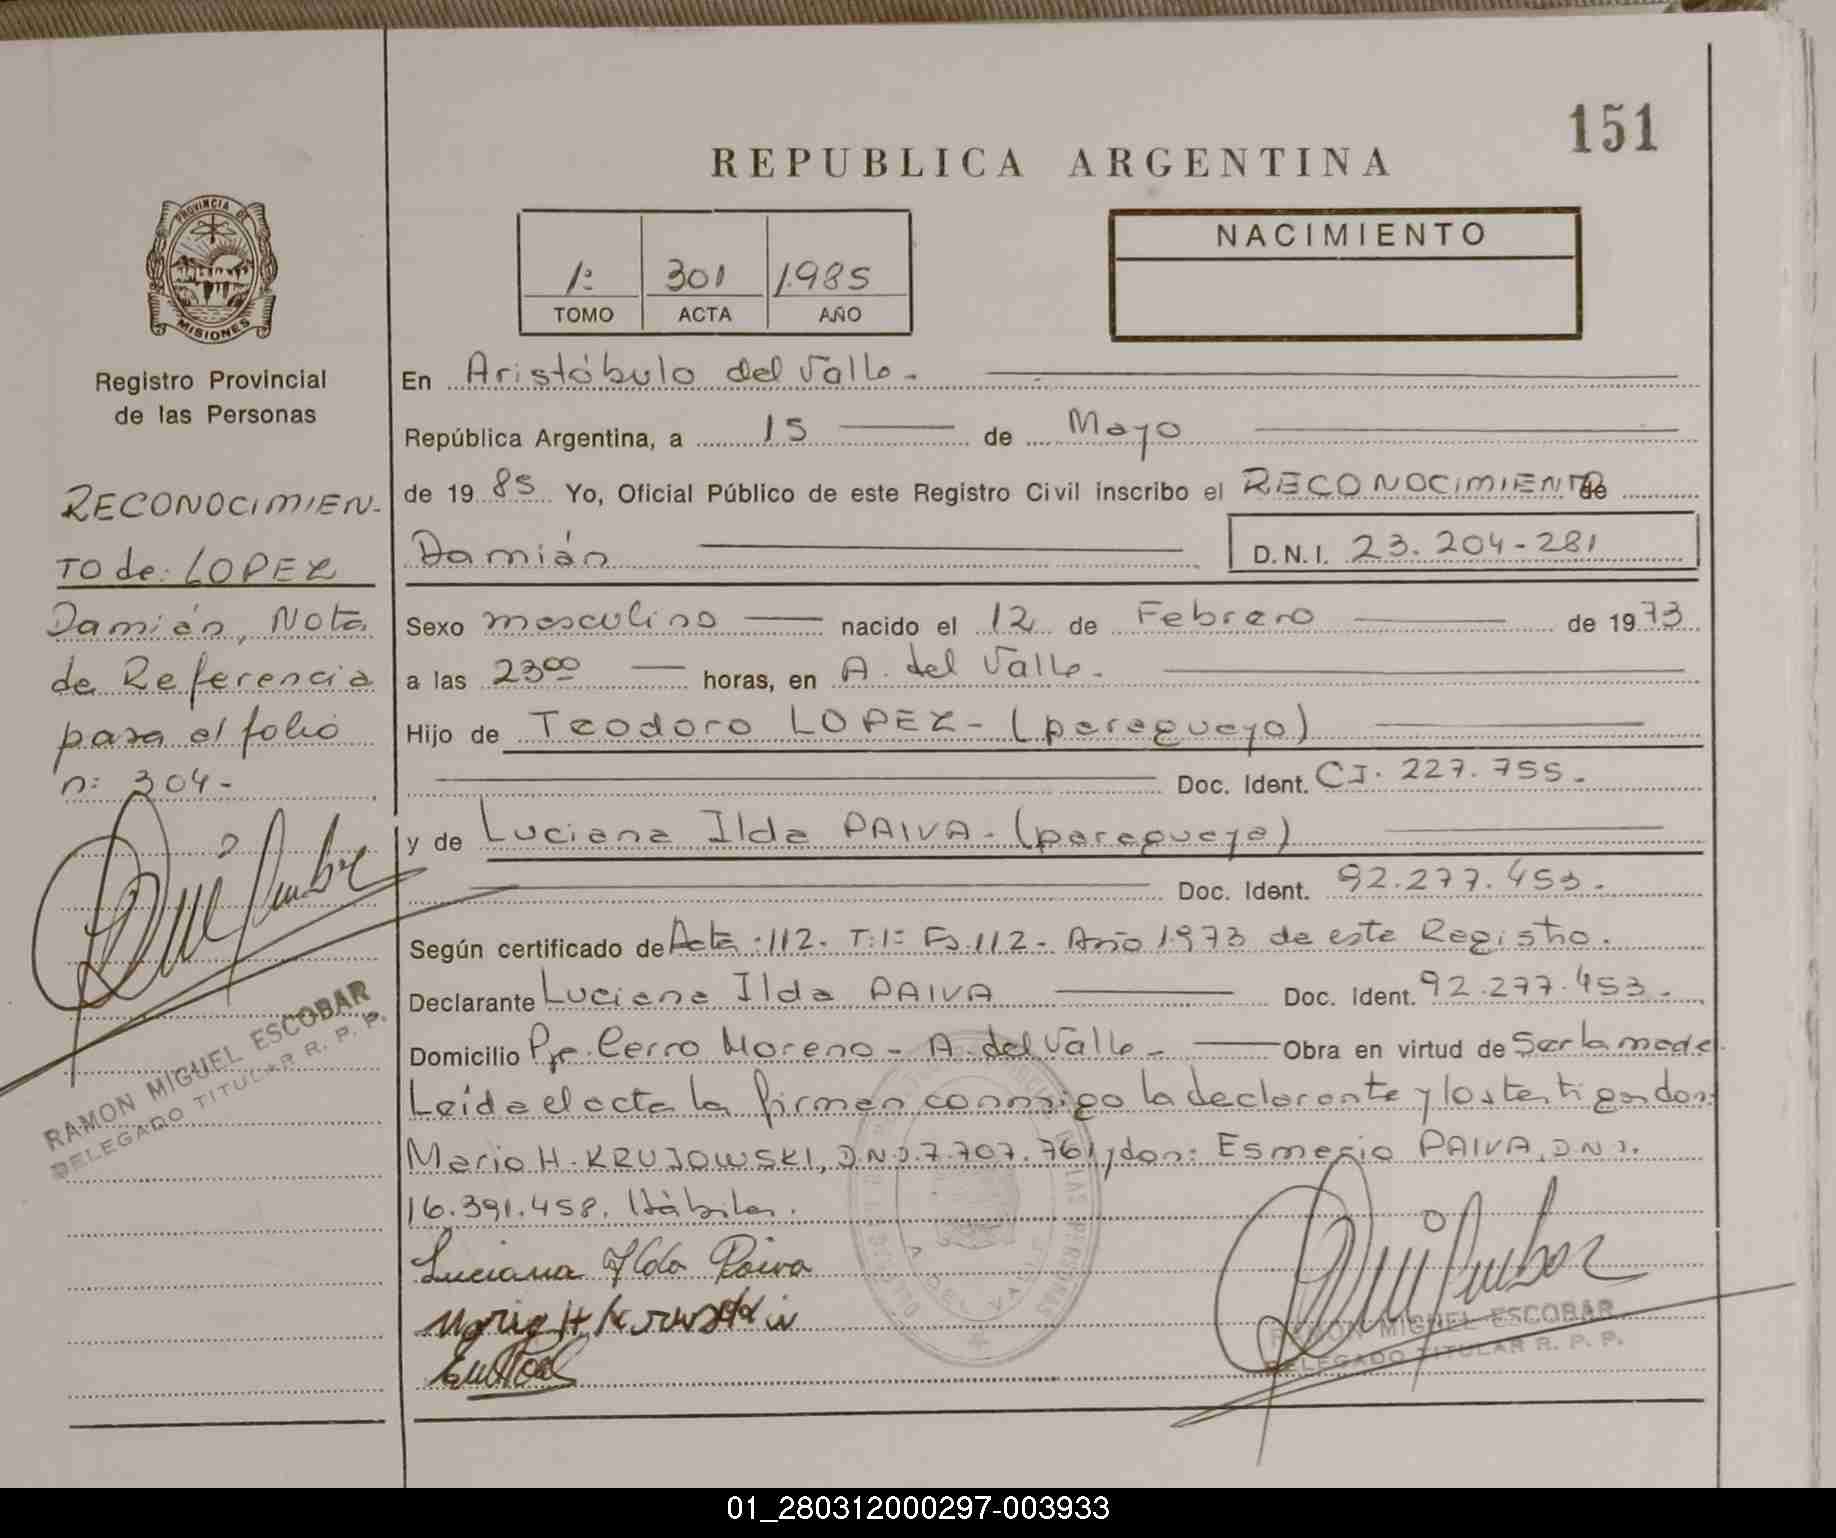 151
REPUBLICA ARGENTINA
PROVINCIA DE
MISIONES
Registro Provincial
de las Personas
1º 301 1.985
TOMO ACTA AÑO
NACIMIENTO
RECONOCIMIEN-
TO de: LOPEZ
Damián, Nota
de Referencia
para el folio
nº 304-
RAMON MIGUEL ESCOBAR
DELEGADO TITULAR R. P. P.
En Aristóbulo del Valle.
República Argentina, a 15 de Mayo
de 1985 Yo, Oficial Público de este Registro Civil inscribo el RECONOCIMIENTO de
Damián D.N.I. 23.204-281
Sexo masculino nacido el 12 de Febrero de 1973
a las 23⁰⁰ horas, en A. del Valle.
Hijo de Teodoro LOPEZ - (paraguayo)
Doc. Ident. CI. 227.755.
y de Luciana Ilda PAIVA - (paraguaya)
Doc. Ident. 92.277.453.
Según certificado de Acta :112. T:1º Fs.112- Año 1.973 de este Registro.
Declarante Luciana Ilda PAIVA Doc. Ident. 92.277.453.
Domicilio Pje. Cerro Moreno - A. del Valle - Obra en virtud de Ser la madre.
Leída el acta la firman conmigo la declarante y los testigos don:
Mario H. KRUJOWSKI, D.N.I. 7.707.761 y don: Esmerio PAIVA, D.N.I.
16.391.458. Hábiles.
Luciana Ilda Paiva
RAMON MIGUEL ESCOBAR
DELEGADO TITULAR R. P. P.
01_280312000297-003933